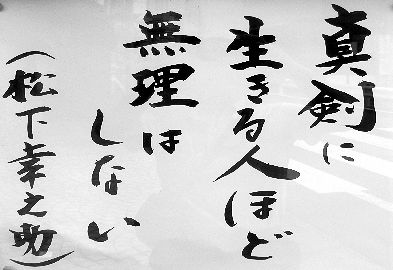 真剣に
生きる人ほど
無理は
しない
(松下幸之助)